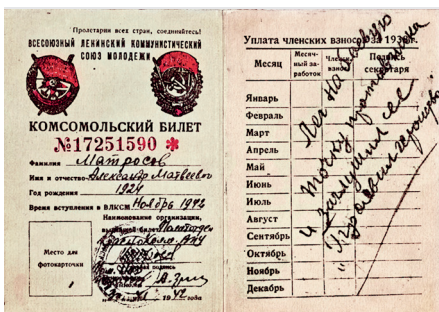 Пролетарии всех стран, соединяйтесь!
ВСЕСОЮЗНЫЙ ЛЕНИНСКИЙ КОММУНИСТИЧЕСКИЙ
СОЮЗ МОЛОДЕЖИ
КОМСОМОЛЬСКИЙ БИЛЕТ
№17251590
Фамилия Матросов
Имя и отчество Александр Матвеевич
Год рождения 1924
Время вступления в ВЛКСМ Ноябрь 1942
Наименование организации,
выдавшей билет
Место для
фотокарточки
подпись
1942 года
Уплата членских взносов за 193 г.
Месяц
Месяч-
ный за-
работок
Членск.
взнос
Подпись
секретаря
Январь
Февраль
Март
Апрель
Май
Июнь
Июль
Август
Сентябрь
Октябрь
Ноябрь
Декабрь
Лег на боевую
точку противника
и заглушил ее
Проявил геройство